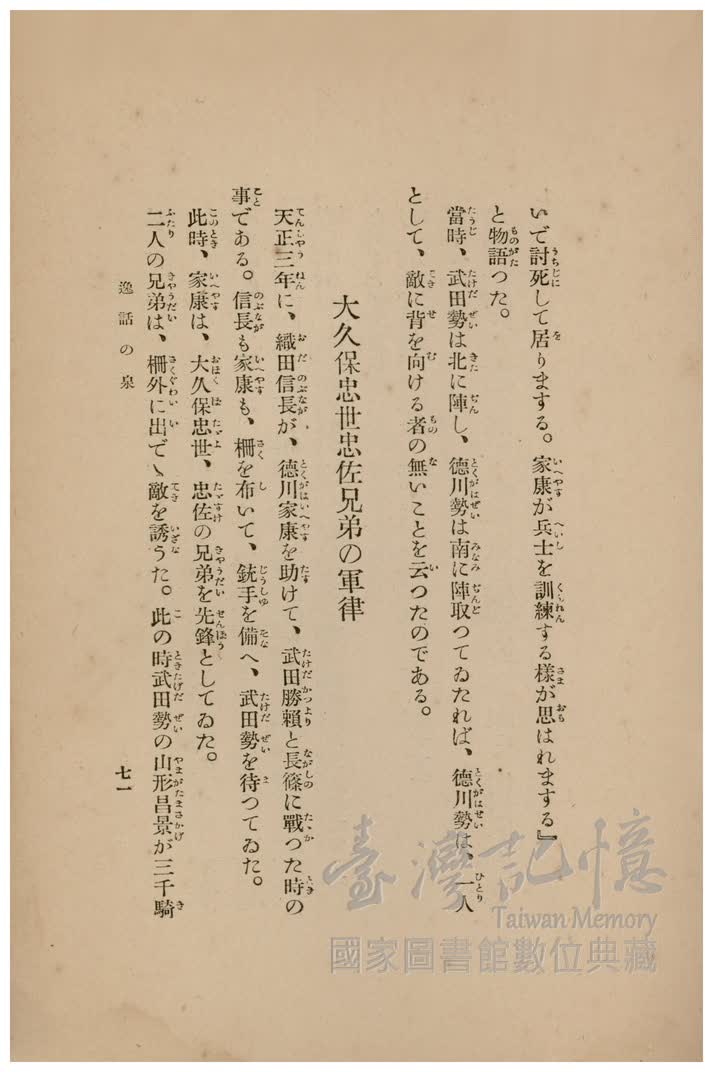 いで討死して居りまする。家康が兵士を訓練する様が思はれまする』
と物語つた。
當時、武田勢は北に陣し、德川勢は南に陣取つてゐたれば、德川勢は、一人
として、敵に背を向ける者の無いことを云つたのである。
大久保忠世忠佐兄弟の軍律
天正三年に、織田信長が、德川家康を助けて、武田勝賴と長篠に戰つた時の
事である。信長も家康も、柵を布いて、銃手を備へ、武田勢を待つてゐた。
此時、家康は、大久保忠世、忠佐の兄弟を先鋒としてゐた。
二人の兄弟は、柵外に出でゝ敵を誘うた。此の時武田勢の山形昌景が三千騎
逸話の泉
七一
臺灣記憶
Taiwan Memory
國家圖書館數位典藏